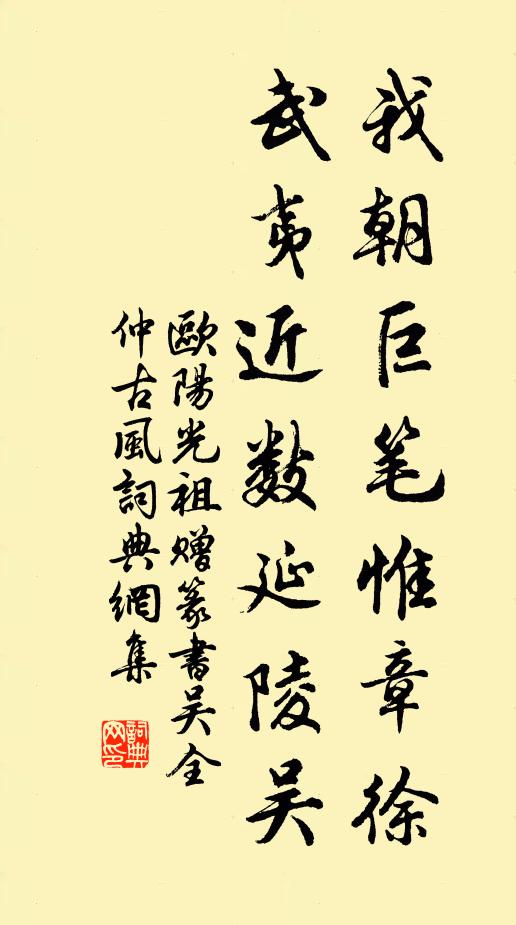 我朝巨笔惟章徐
武夷近数延陵吴
歐陽光祖赠篆書吴全
仲古風詞典網集
詞典
网印